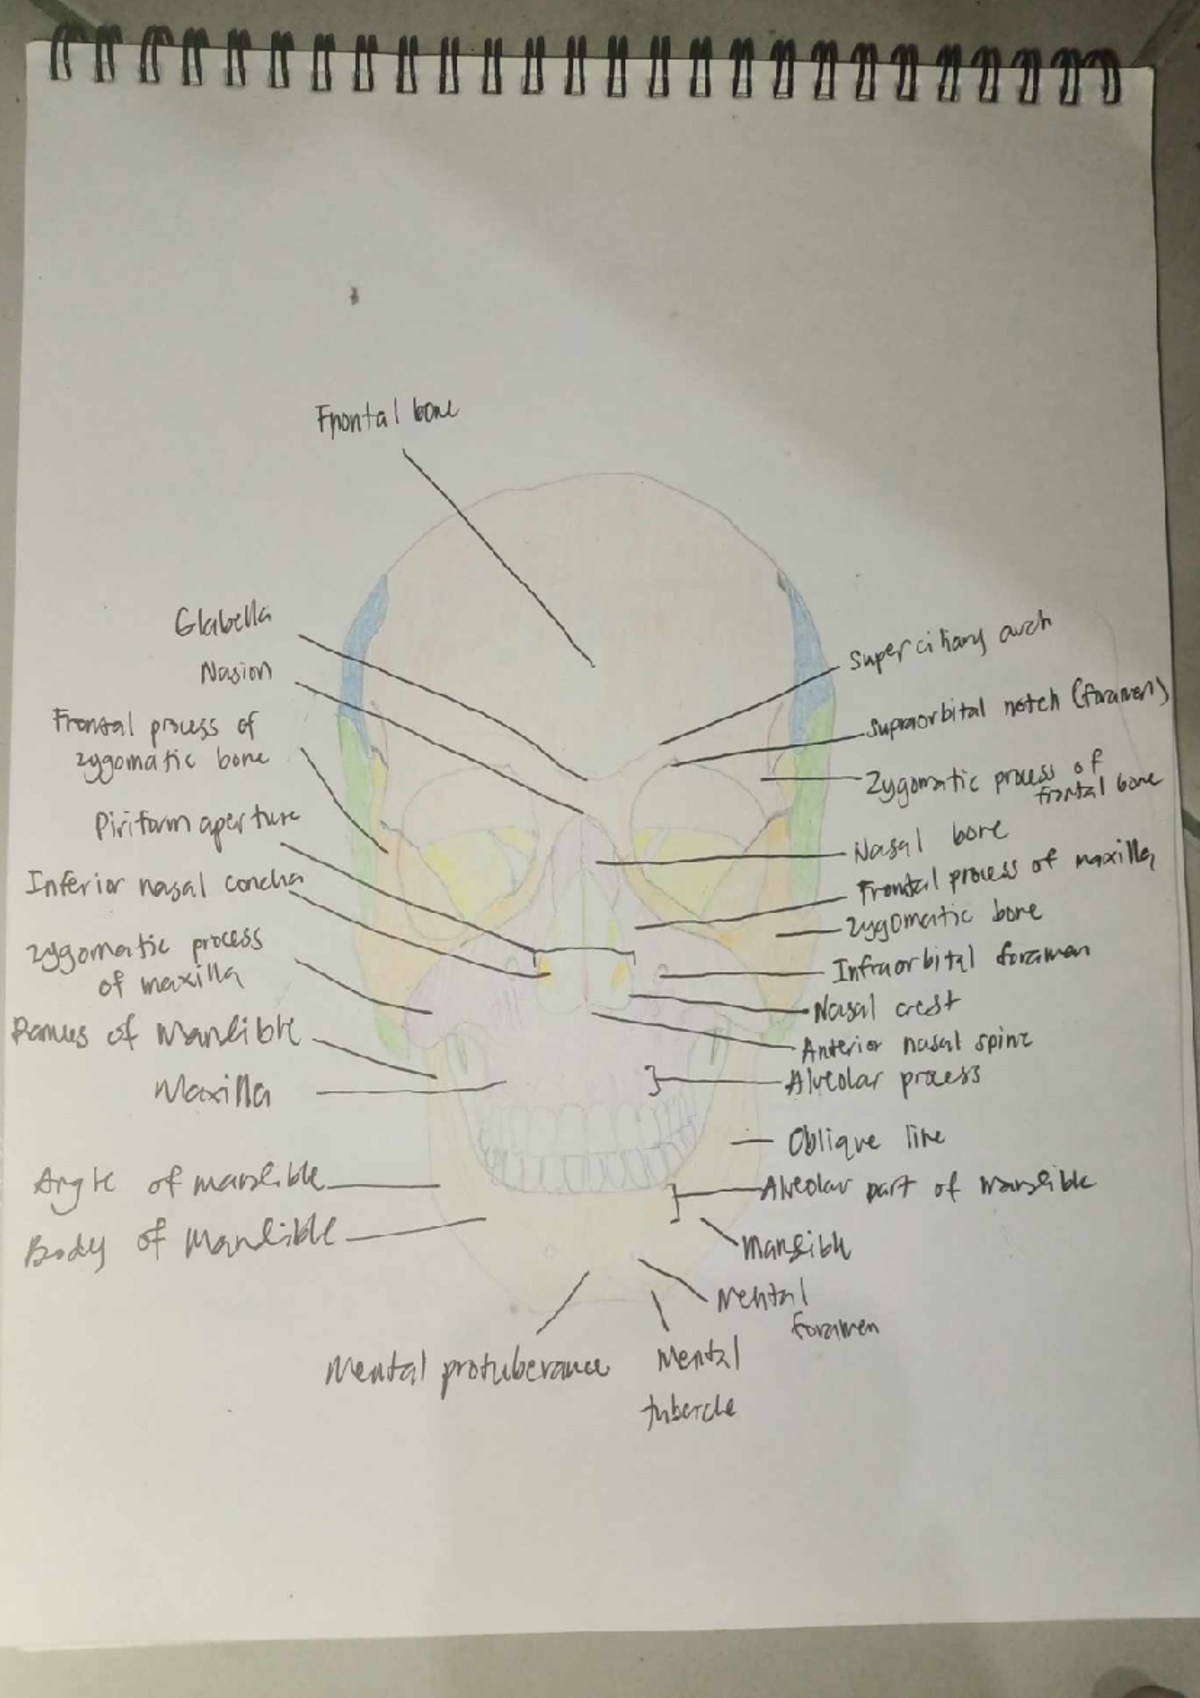 Frontal bone
Glabella
Nasion
Frontal process of
zygomatic bone
Piriform aperture
Inferior nasal concha
Zygomatic process
of maxilla
Ramus of Mandible
Maxilla
Angle of mandible
Body of Mandible
Mental protuberance
Superciliary arch
Supraorbital notch (foramen)
Zygomatic process of
frontal bone
Nasal bone
Frontal process of maxilla
Zygomatic bone
Infraorbital foramen
Nasal crest
Anterior nasal spine
Alveolar process
Oblique line
Alveolar part of mandible
Mandible
Mental
foramen
Mental
tubercle